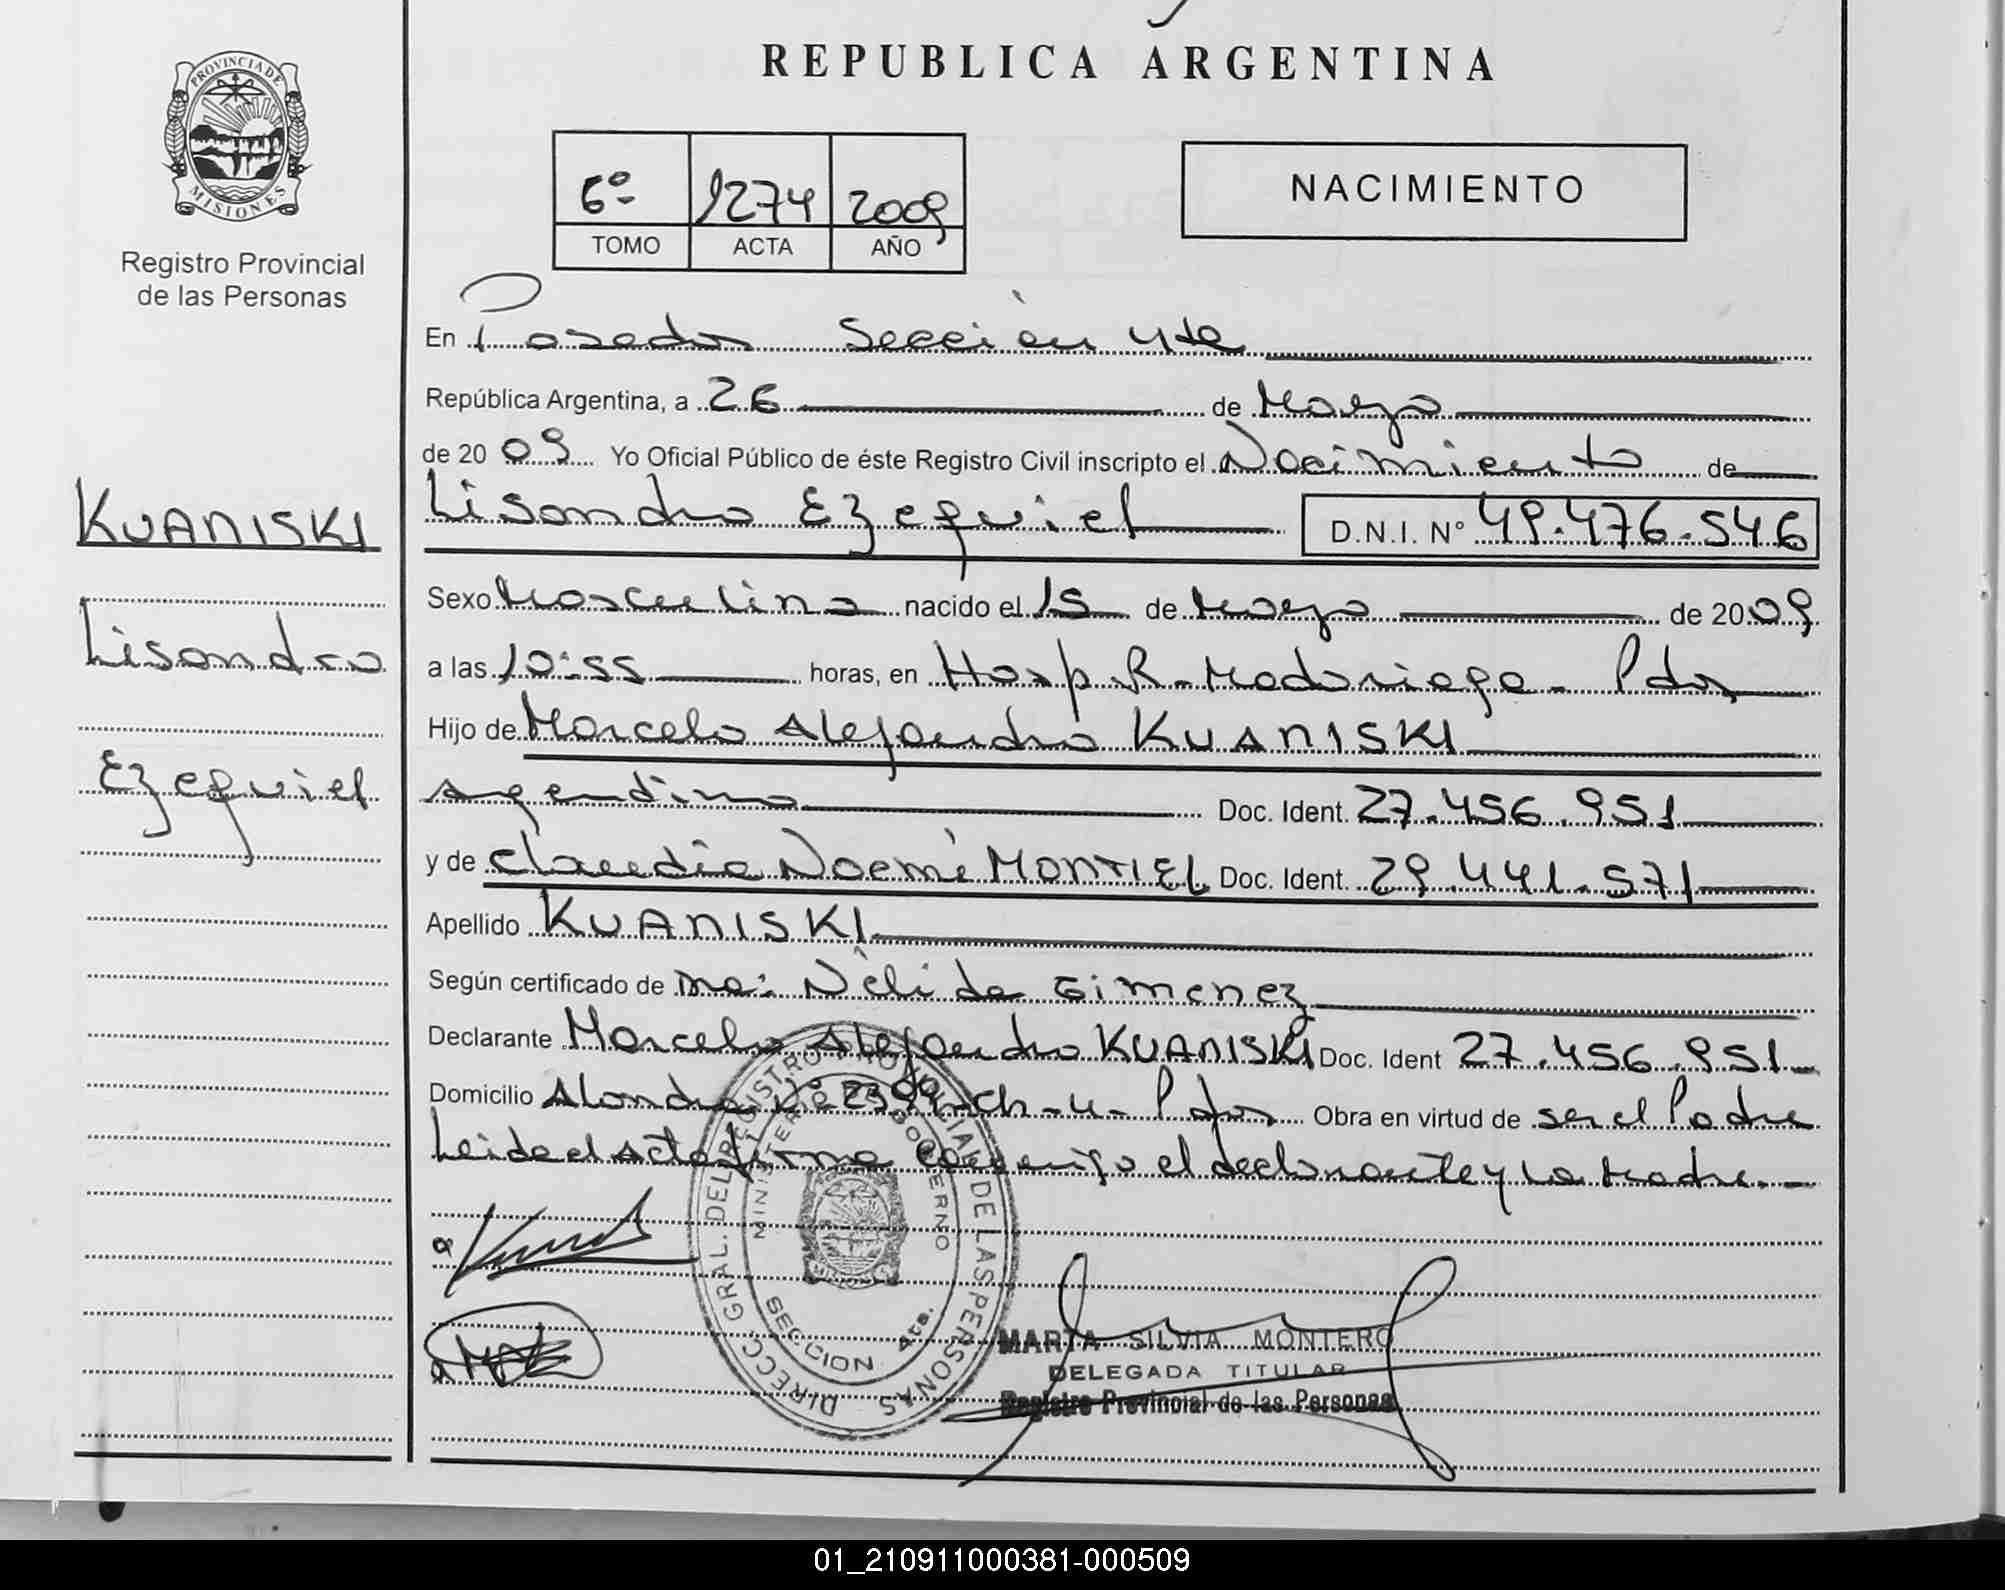 REPUBLICA ARGENTINA
PROVINCIA DE
MISIONES
Registro Provincial
de las Personas
6º 1274 2009
TOMO ACTA AÑO
NACIMIENTO
En Posadas Sección 4ta
República Argentina, a 26 de Mayo
de 2009 Yo Oficial Público de éste Registro Civil inscripto el Nacimiento de
Lisandro Ezequiel D.N.I. Nº 49.476.546
KUANISKI
Lisandro
Ezequiel
Sexo Masculino nacido el 15 de Mayo de 2009
a las 10:55 horas, en Hosp. R. Madariaga - Pdas
Hijo de Marcelo Alejandro KUANISKI
argentino Doc. Ident. 27.456.951
y de Claudia Noemí MONTIEL Doc. Ident. 29.441.571
Apellido KUANISKI
Según certificado de Nélida Gimenez
Declarante Marcelo Alejandro KUANISKI Doc. Ident 27.456.951
Domicilio Alondra Nº Ch - 4 - Pdas Obra en virtud de ser el Padre
Leida el Acta firma conmigo el declarante y la Madre.-
DIRECC. GRAL. DEL REGISTRO PROVINCIAL DE LAS PERSONAS
MINISTERIO DE GOBIERNO
MISIONES
SECCION 4ta.
MARTA SILVIA MONTERO
DELEGADA TITULAR
Registro Provincial de las Personas
01_210911000381-000509